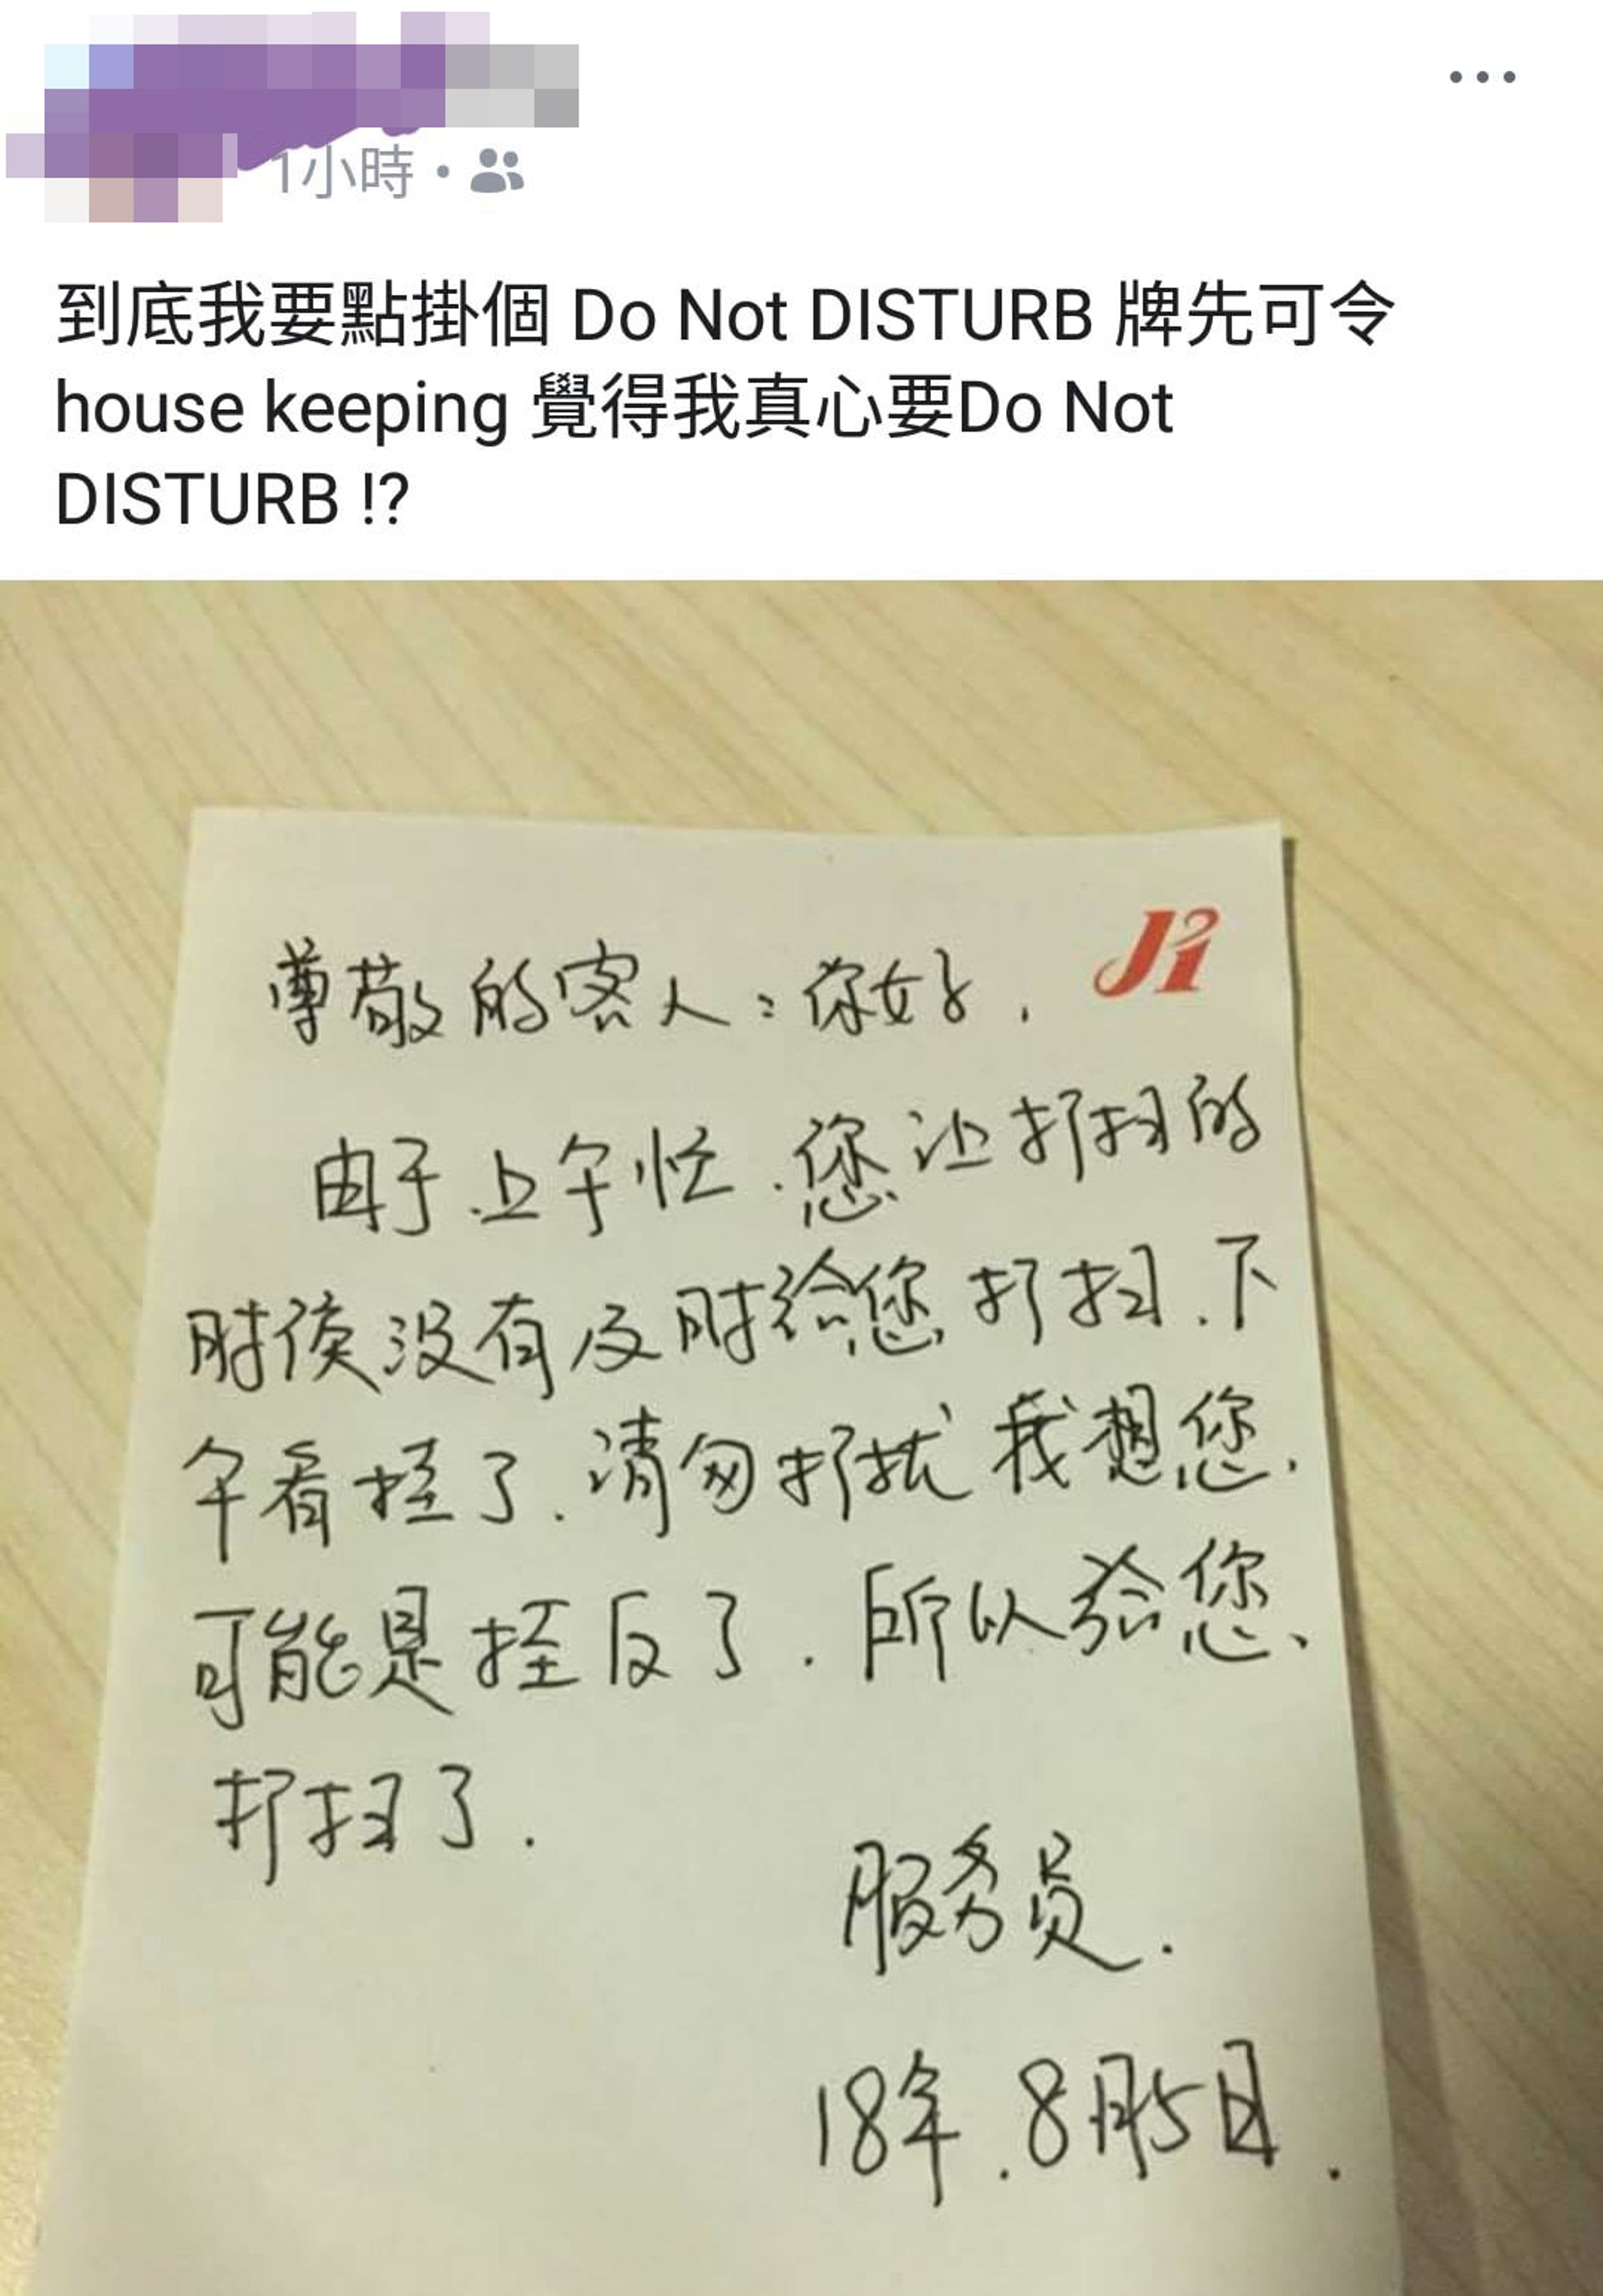 1小時
到底我要點掛個 Do Not DISTURB 牌先可令
house keeping 覺得我真心要Do Not
DISTURB !?
Ji
尊敬的客人：你好.
由于上午忙.您让打扫的
时候没有及时给您打扫.下
午看挂了.请勿打扰我想您.
可能是挂反了.所以给您、
打扫了.
服务员.
18年.8月5日.